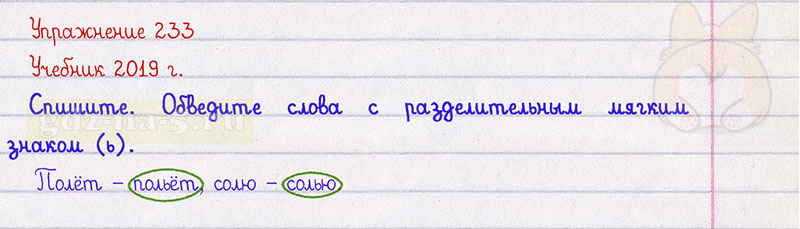 Упражнение 233
Учебник 2019 г.
Спишите. Обведите слова с разделительным мягким
знаком (ь).
gdz-na-5.ru
Полёт – польёт, солю – солью